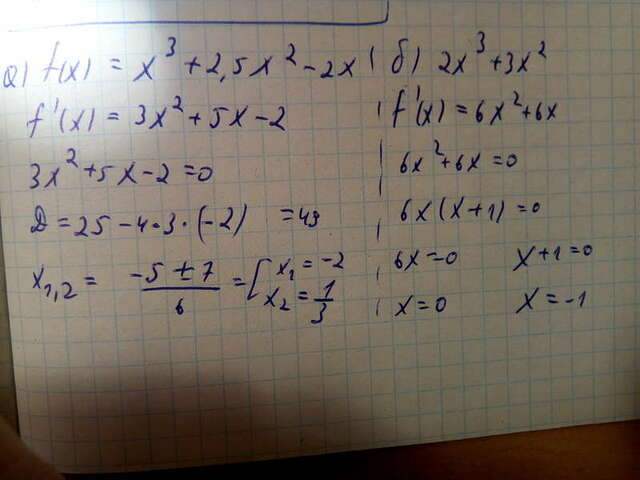 а) f(x) = x³ + 2,5x² - 2x
f'(x) = 3x² + 5x - 2
3x² + 5x - 2 = 0
D = 25 - 4·3·(-2) = 49
x₁,₂ = (-5 ± 7)/6 = [x₁ = -2 x₂ = 1/3
б) 2x³ + 3x²
f'(x) = 6x² + 6x
6x² + 6x = 0
6x(x+1) = 0
6x = 0 x + 1 = 0
x = 0 x = -1